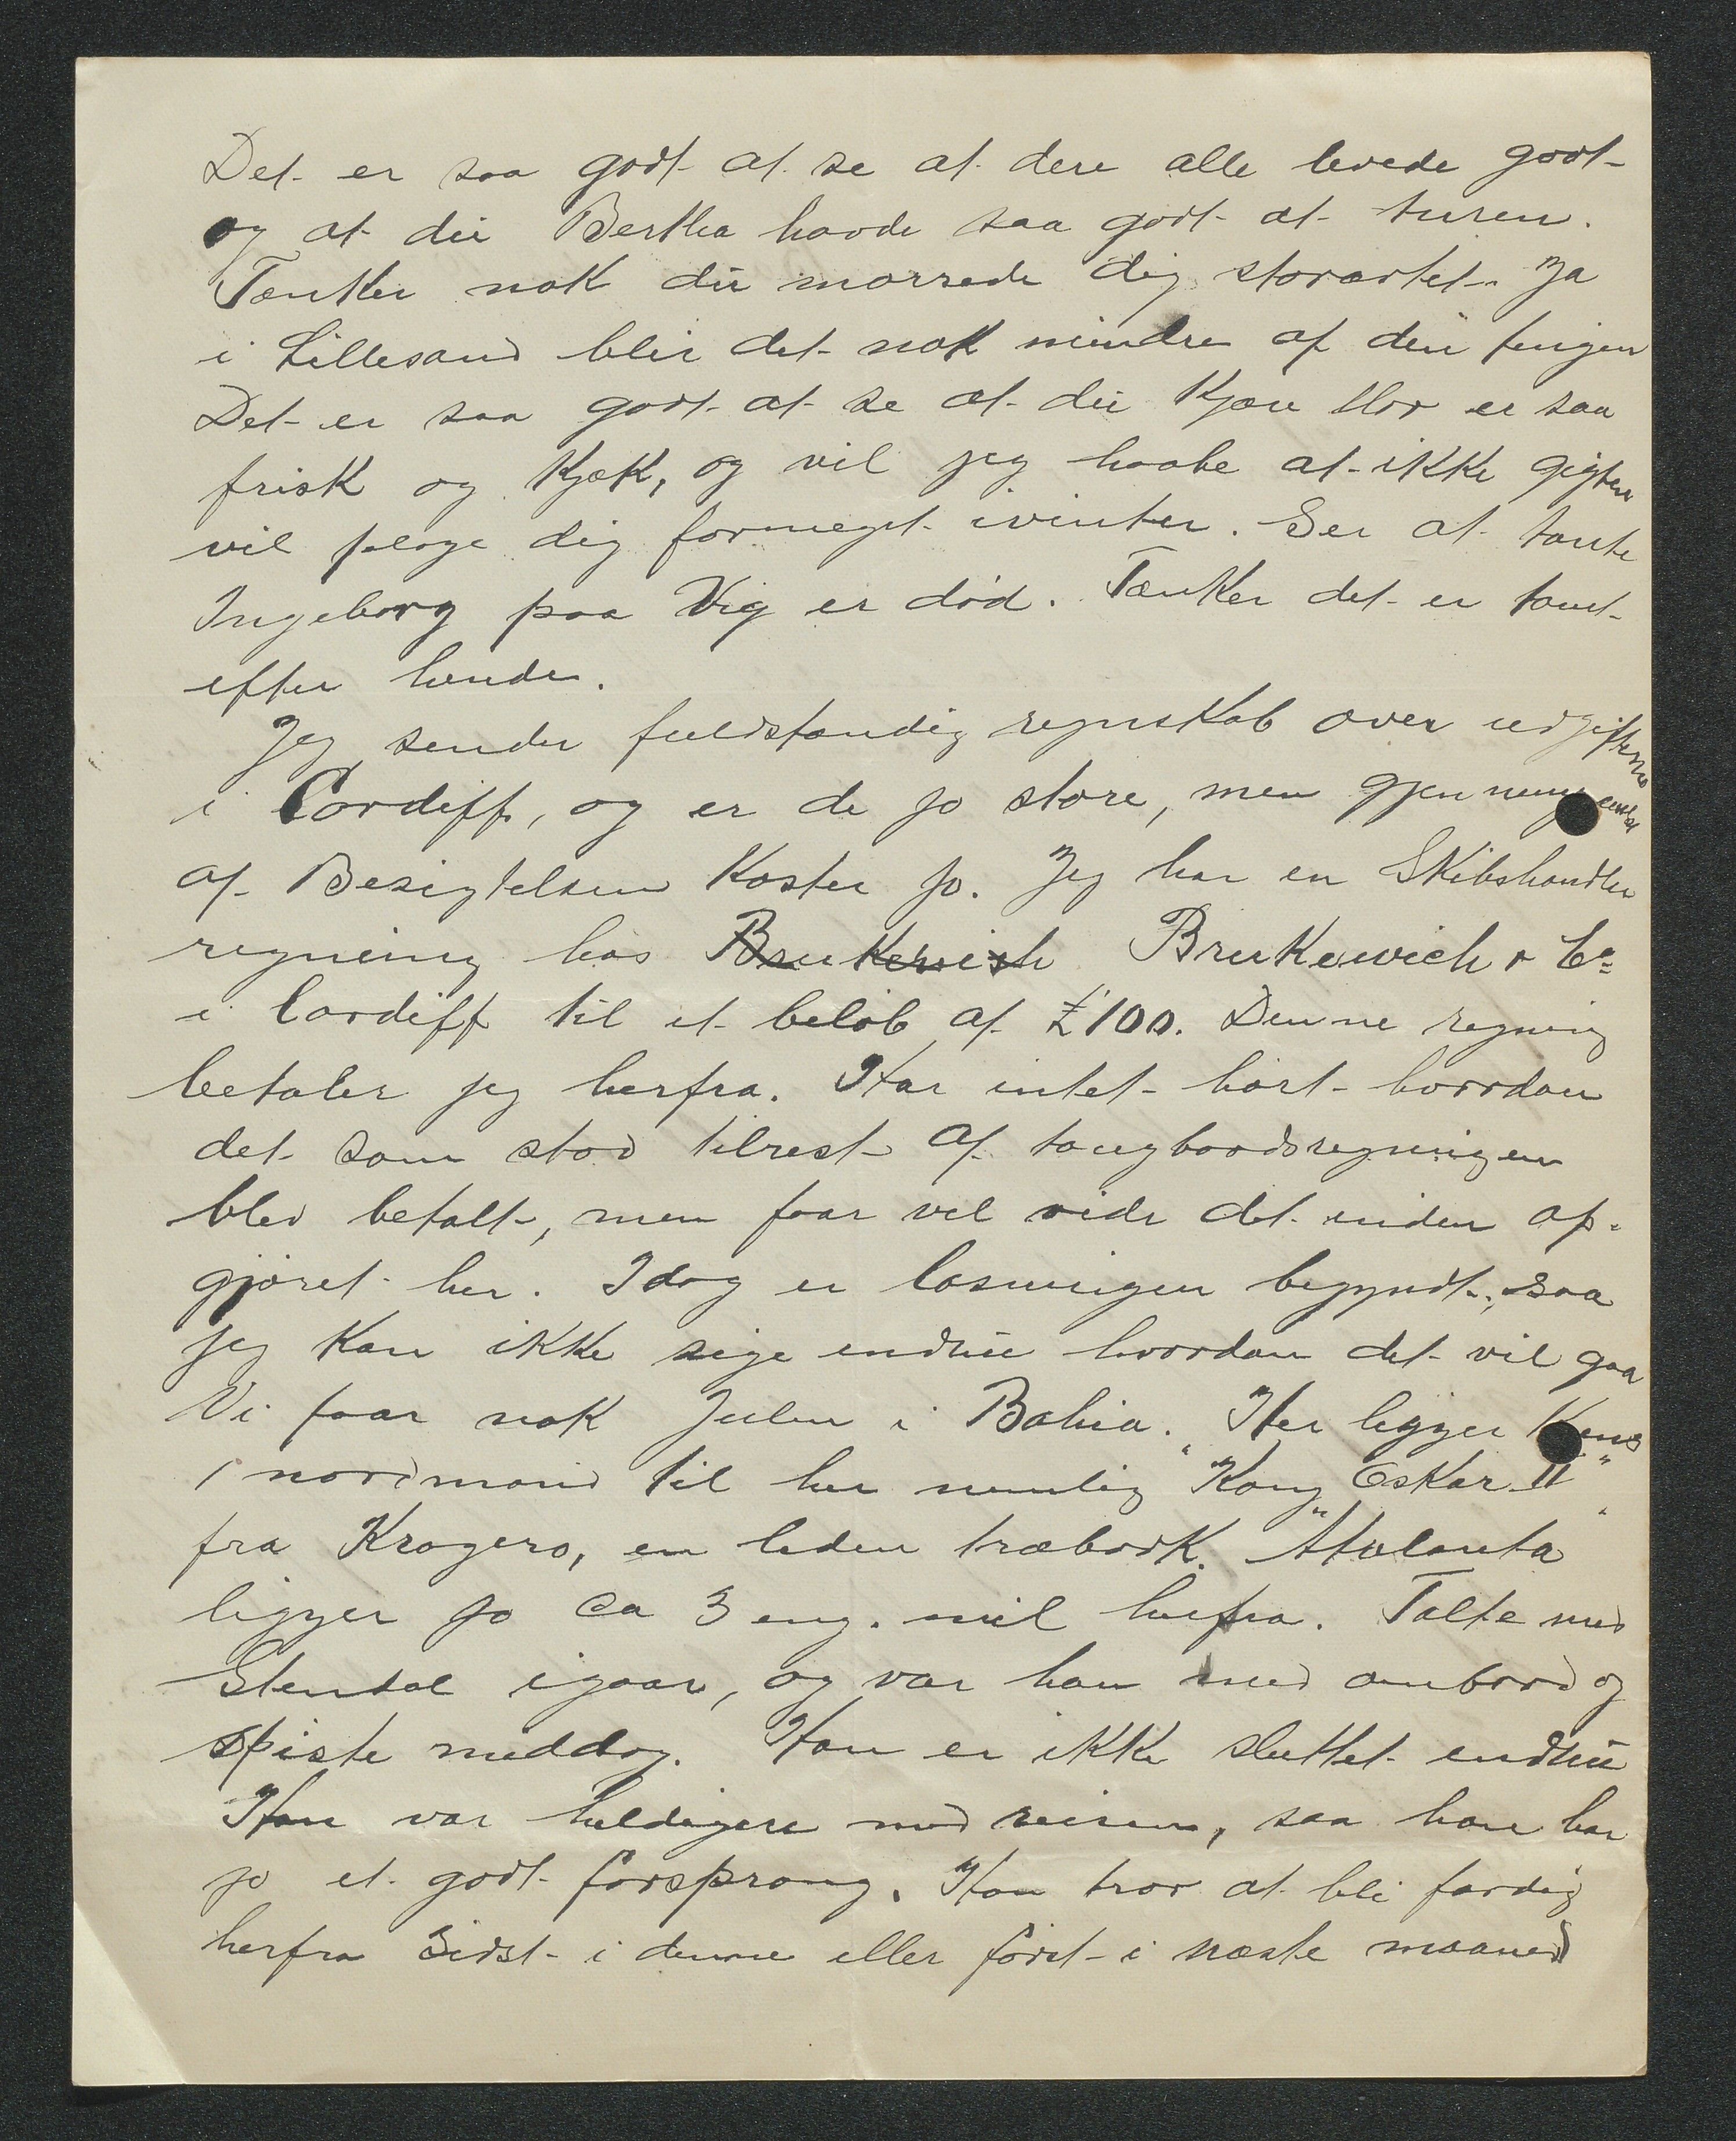 Det er saa godt at se at dere alle levede godt
og at du Bertha havde saa godt at turen.
Tænker nok du morrede dig storartet. Ja
i Lillesand blir det nok mindre af den
Det er saa godt at se at du Kjære Mor er saa
frisk og Kjæk, og vil jeg haabe at ikke gigten
vil plage dig formeget ivinter. Ser at tante
Ingeborg paa Vig er død. Tænker det er tomt
efter hende.
Jeg sender fuldstændig regnskab over udgifterne
i Cardiff, og er de jo store, men
af Besigtelsen Koster jo. Jeg har en Skibshandler
regning hos Brukewich Brukewich & Co
i Cardiff til et beløb af £100. Denne regning
betaler jeg herfra. Har intet hørt hvordan
det som stod tilrest af taugbaadsregningen
blev betalt, men faar vel vide det inden op-
gjøret her. Idag er losningen begyndt, saa
jeg Kan ikke sige endnu hvordan det vil gaa
Vi faar nok Julen i Bahia. Her ligger Kuns
1 nordmand til her nemlig "Kong Oskar II"
fra Kragerø, en liden træbark. "Atalanta"
ligger jo ca 3 eng. mil herfra. Talte med
Stendal igaar, og var han med ombord og
spiste middag. Han er ikke sluttet endnu
Han var heldigere med reisen, saa han har
jo et godt forsprang. Han tror at bli færdig
herfra sidst i denne eller først i næste maaned